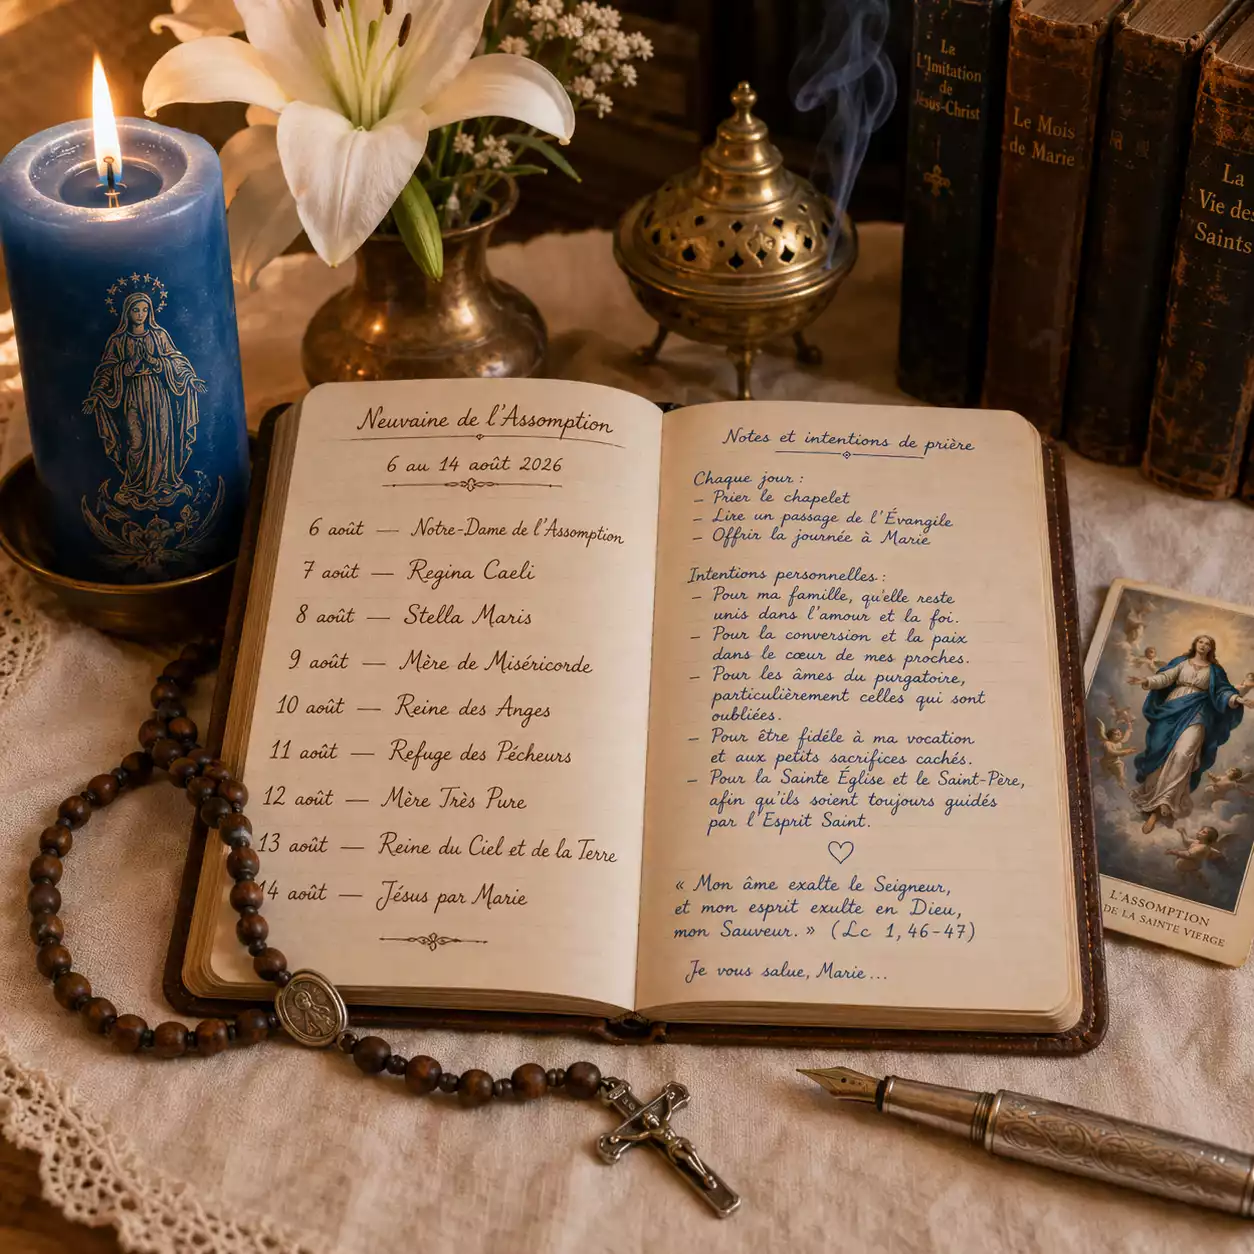 La
L'Imitation
de
Jésus-Christ
Le Mois
de Marie
La
Vie des
Saints
Neuvaine de l'Assomption
6 au 14 août 2026
6 août — Notre-Dame de l'Assomption
7 août — Regina Caeli
8 août — Stella Maris
9 août — Mère de Miséricorde
10 août — Reine des Anges
11 août — Refuge des Pécheurs
12 août — Mère Très Pure
13 août — Reine du Ciel et de la Terre
14 août — Jésus par Marie
Notes et intentions de prière
Chaque jour :
– Prier le chapelet
– Lire un passage de l'Évangile
– Offrir la journée à Marie
Intentions personnelles :
– Pour ma famille, qu'elle reste
unis dans l'amour et la foi.
– Pour la conversion et la paix
dans le cœur de mes proches.
– Pour les âmes du purgatoire,
particulièrement celles qui sont
oubliées.
– Pour être fidèle à ma vocation
et aux petits sacrifices cachés.
– Pour la Sainte Église et le Saint-Père,
afin qu'ils soient toujours guidés
par l'Esprit Saint.
« Mon âme exalte le Seigneur,
et mon esprit exulte en Dieu,
mon Sauveur. » (Lc 1, 46-47)
Je vous salue, Marie...
L'ASSOMPTION
DE LA SAINTE VIERGE